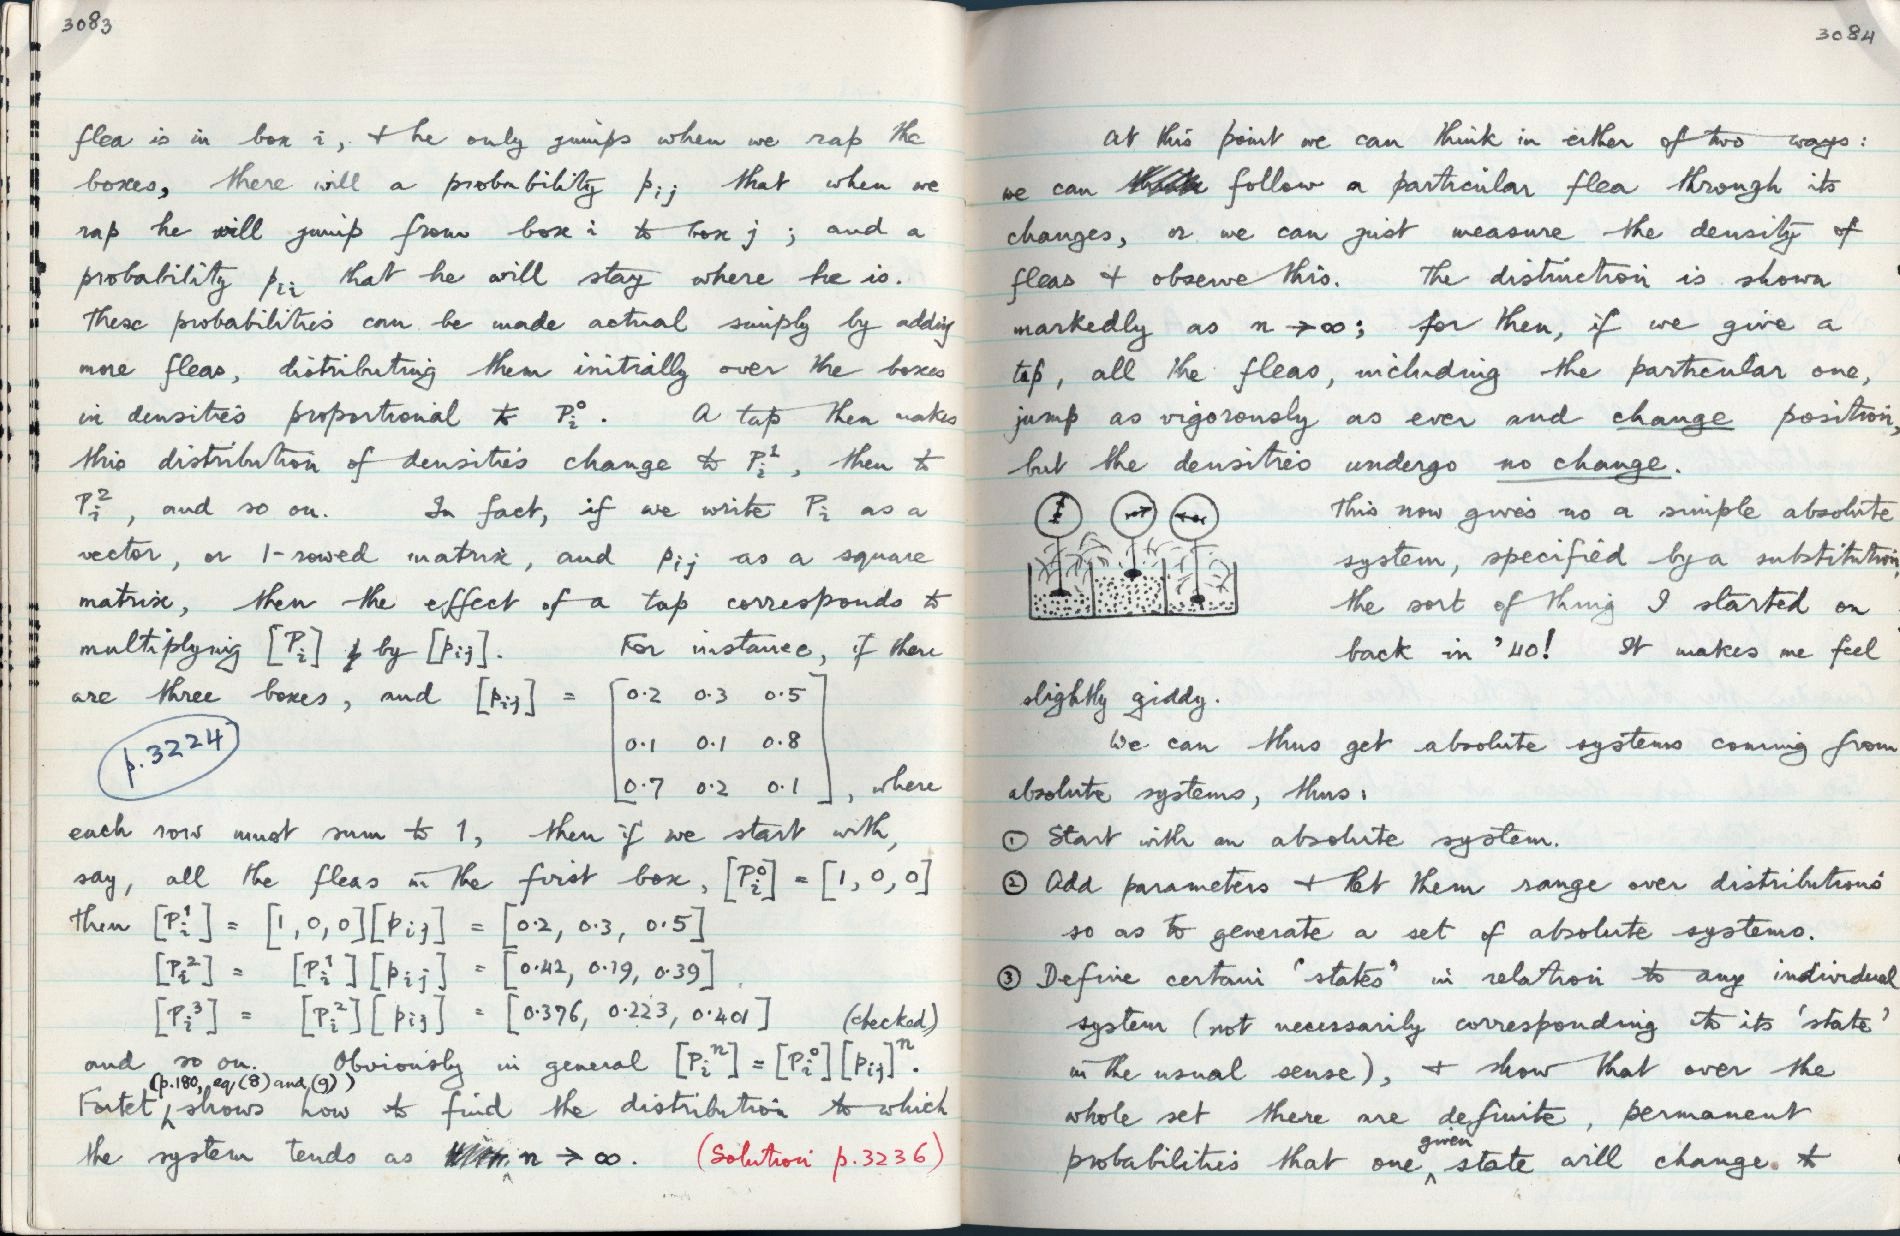 3083
flea is in box i, + he only jumps when we rap the
boxes, there will a probability pij that when we
rap he will jump from box i to box j ; and a
probability pii that he will stay where he is.
These probabilities can be made actual simply by adding
more fleas, distributing them initially over the boxes
in densities proportional to Pi⁰. A tap then makes
this distribution of densities change to Pi¹, then to
Pi², and so on. In fact, if we write Pi as a
vector, or 1-rowed matrix, and pij as a square
matrix, then the effect of a tap corresponds to
multiplying [Pi] by [pij]. For instance, if there
are three boxes, and [pij] = [0.2 0.3 0.5
0.1 0.1 0.8
p.3224
0.7 0.2 0.1], where
each row must sum to 1, then if we start with,
say, all the fleas in the first box, [Pi⁰] = [1, 0, 0]
Then [Pi¹] = [1, 0, 0][pij] = [0.2, 0.3, 0.5]
[Pi²] = [Pi¹][pij] = [0.42, 0.19, 0.39]
[Pi³] = [Pi²][pij] = [0.376, 0.223, 0.401] (checked)
and so on. Obviously in general [Piⁿ] = [Pi⁰][pij]ⁿ.
(p.180, eq (8) and (9))
Fortet shows how to find the distribution to which
the system tends as n → ∞. (Solution p.3236)
3084
At this point we can think in either of two ways:
we can follow a particular flea through its
changes, or we can just measure the density of
fleas + observe this. The distinction is shown
markedly as n → ∞; for then, if we give a
tap, all the fleas, including the particular one,
jump as vigorously as ever and change position,
but the densities undergo no change.
This now gives no a simple absolute
system, specified by a substitution,
the sort of thing I started on
back in '40! It makes me feel
slightly giddy.
We can thus get absolute systems coming from
absolute systems, thus:
① Start with an absolute system.
② Add parameters + let them range over distributions
so as to generate a set of absolute systems.
③ Define certain 'states' in relation to any individual
system (not necessarily corresponding to its 'state'
in the usual sense), + show that over the
whole set there are definite, permanent
given
probabilities that one state will change to